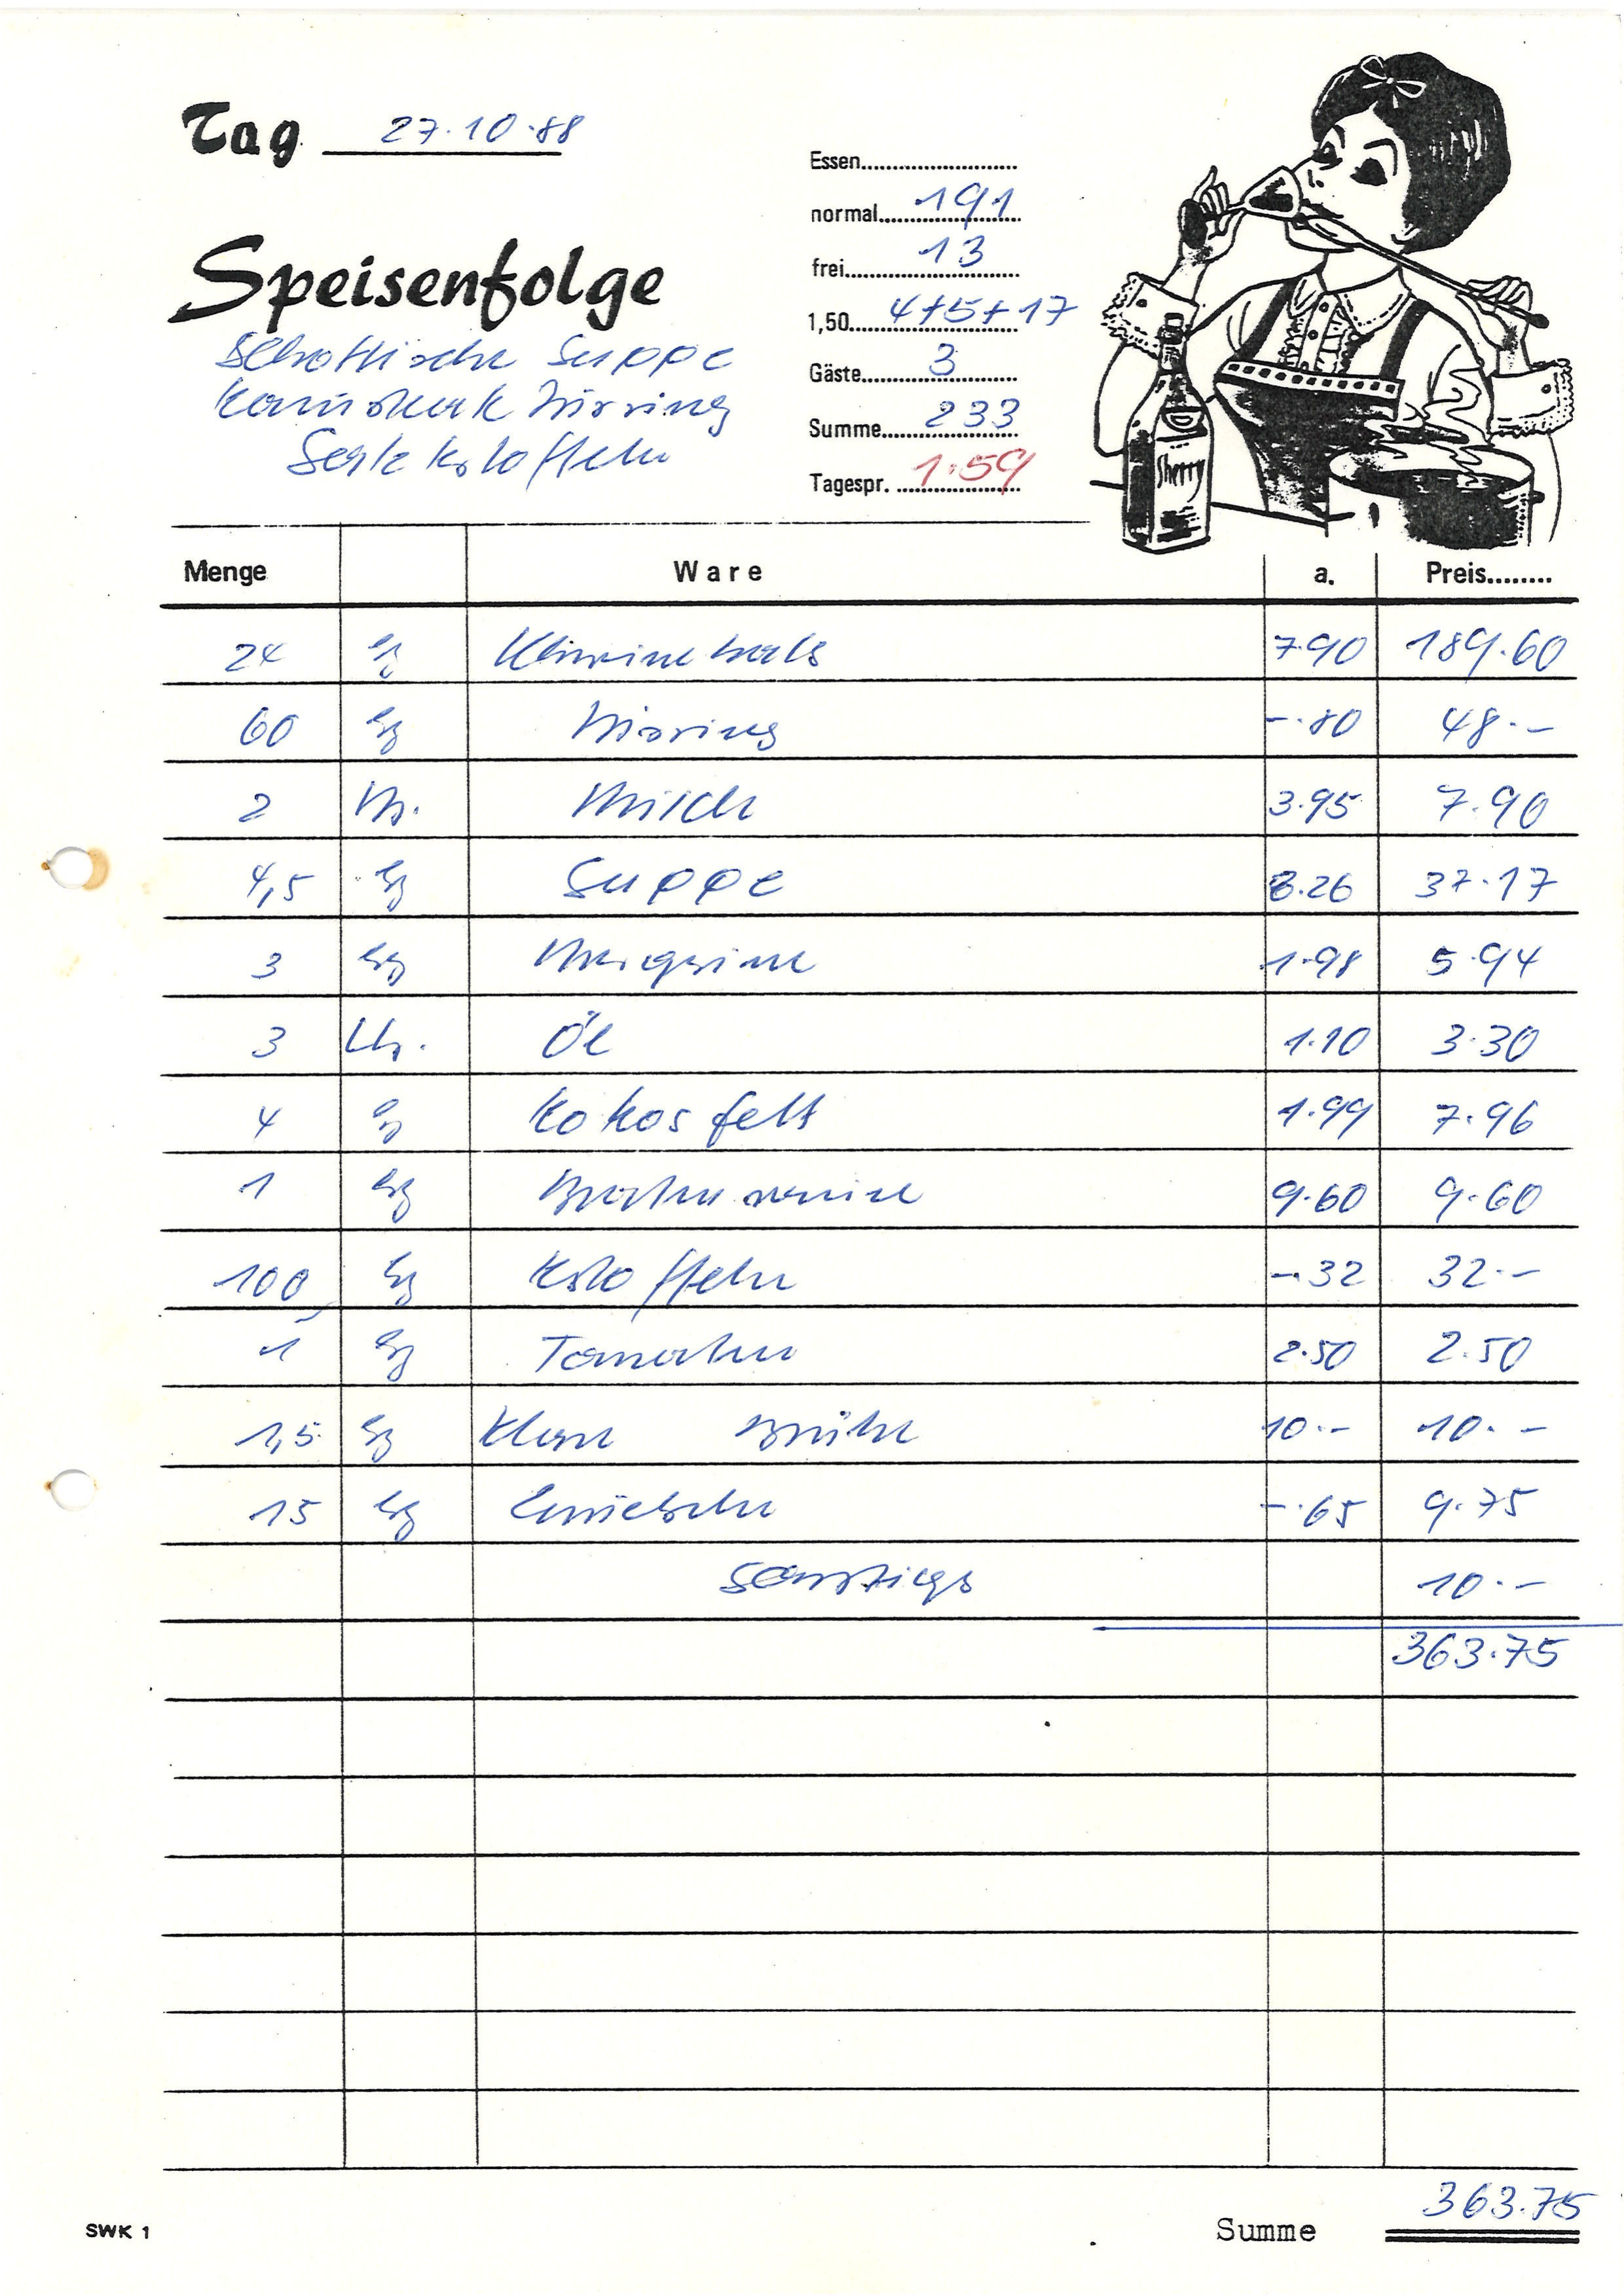 Tag 27.10.88
Speisenfolge
Schottische Suppe
Wirsing
Salzkartoffeln
Essen
normal 191
frei 13
1,50 4+5+17
Gäste 3
Summe 233
Tagespr. 1.59
Sherry
Menge Ware a. Preis
24 kg Schweinehals 7.90 189.60
60 kg Wirsing -.80 48.-
2 Milch 3.95 7.90
4,5 kg Suppe 8.26 37.17
3 kg Margarine 1.98 5.94
3 Ltr. Öl 1.10 3.30
4 kg Kokosfett 1.99 7.96
1 kg 9.60 9.60
100 kg Kartoffeln -.32 32.-
1 kg Tomaten 2.50 2.50
1,5 kg Klare Brühe 10.- 10.-
15 kg Zwiebeln -.65 9.75
Sonstiges 10.-
363.75
363.75
SWK 1 Summe